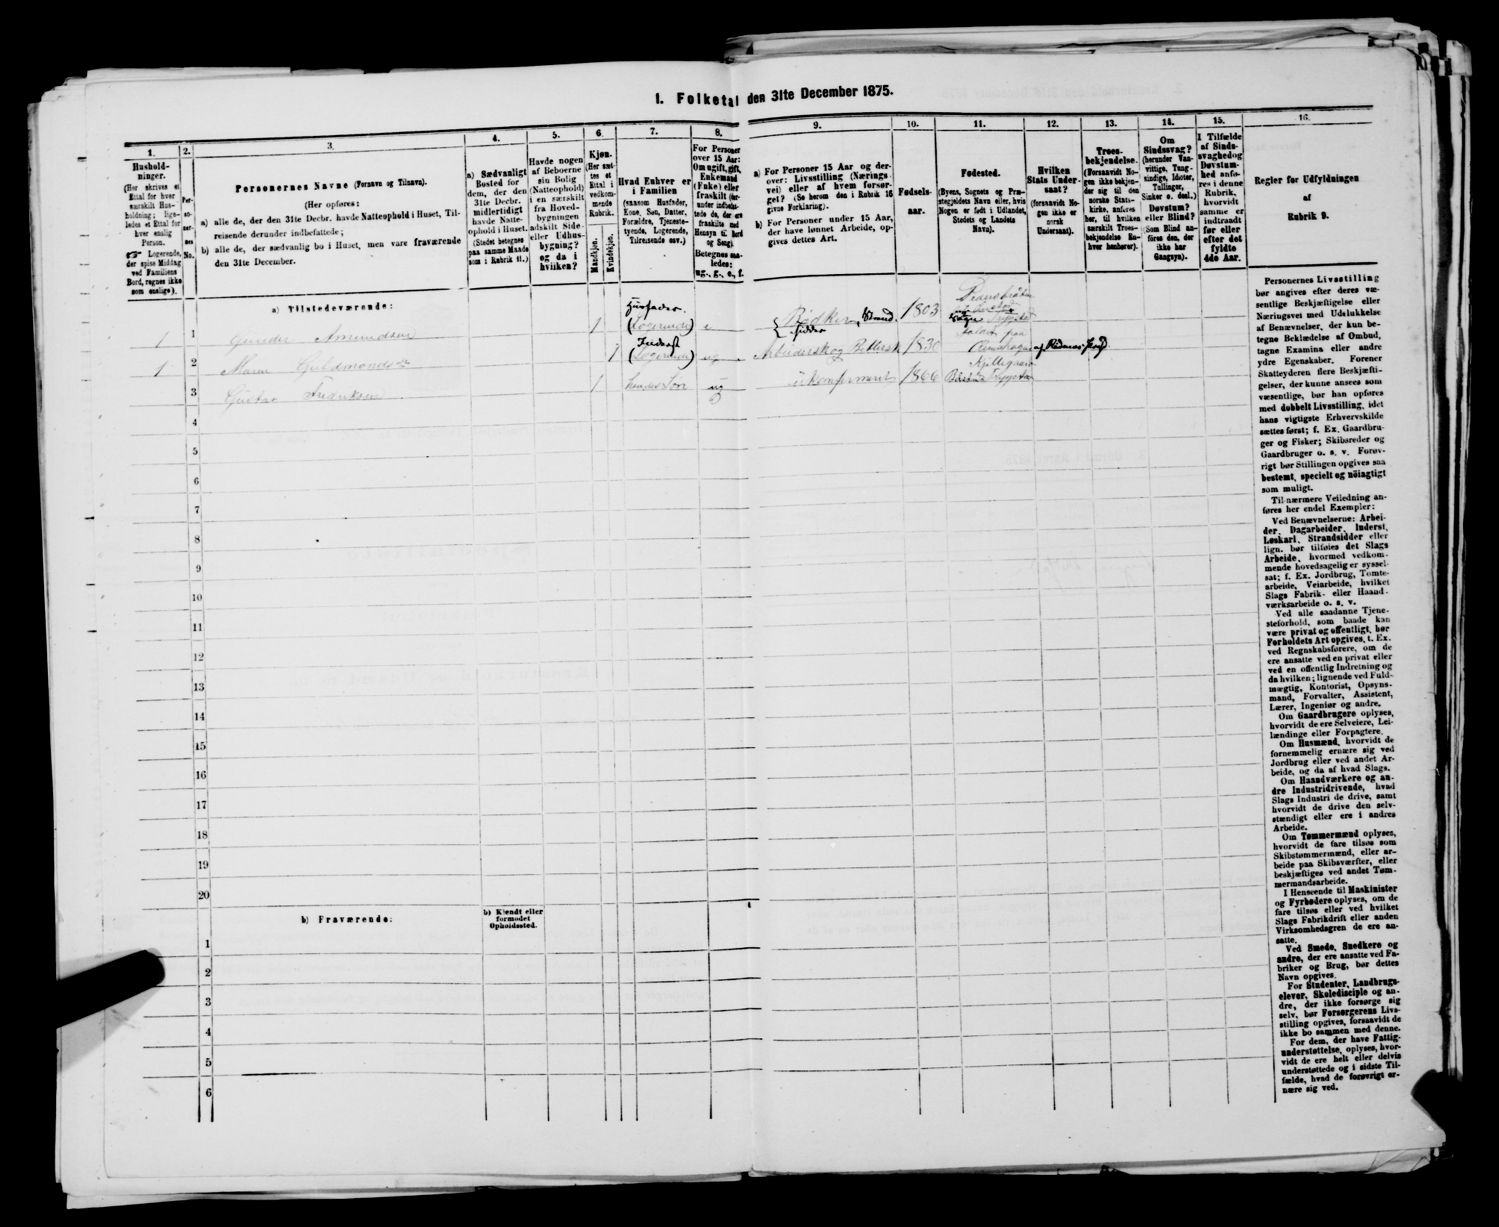 1. Folketal den 31te December 1875.
1.
Husholdninger.
(Her skrives et
Ettal for hver
særskilt Husholdning; ligeledes
et Ettal for
hver enslig
Person.
☞ Logerende,
der spise Middag
ved Familiens
Bord, regnes ikke
som enslige).
2.
Personernes
No.
3.
Personernes Navne (Fornavn og Tilnavn).
(Her opføres:
a) alle de, der den 31te Decbr. havde Natteophold i Huset, Tilreisende
derunder indbefattede;
b) alle de, der sædvanlig bo i Huset, men vare fraværende
den 31te December.
4.
a) Sædvanligt
Bosted for
dem, der den
31te Decbr.
midlertidigt
havde Natteophold
i Huset.
(Stedet betegnes
paa samme Maade
som i Rubrik 11.)
5.
Havde nogen
af Beboerne
sin Bolig
(Natteophold)
i en særskilt
fra Hovedbygningen
adskilt Side-
eller Udhusbygning?
og da i
hvilken?
6.
Kjøn.
(Her sættes
et
Ettal i
vedkommende
Rubrik.)
Mandkjøn.
Kvindekjøn.
7.
Hvad Enhver er
i Familien
(saasom Husfader,
Kone, Søn, Datter,
Forældre, Tjenestetyende,
Logerende,
Tilreisende osv.)
8.
For Personer
over 15 Aar:
Om ugift, gift,
Enkemand
(Enke) eller
fraskilt
Betegnes saaledes:
ug., g., e., f.
9.
a) For Personer 15 Aar og derover:
Livsstilling (Næringsvei)
eller af hvem forsørget?
(Se herom den i Rubrik 16
givne Forklaring).
b) For Personer under 15 Aar,
der have lønnet Arbeide, opgives
dettes Art.
10.
Fødselsaar.
11.
Fødested.
(Byens, Sognets og Præstegjeldets
Navn eller, hvis
Nogen er født i Udlandet,
Stedets og Landets
Navn).
12.
Hvilken
Stats Undersaat?
(forsaavidt Nogen
ikke er
norsk
Undersaat).
13.
Troesbekjendelse.
(Forsaavidt Nogen
ikke bekjender
sig til den
norske Statskirke,
anføres
her, til hvilken
særskilt Troesbekjendelse
Enhver
henhører).
14.
Om
Sindssvag?
(herunder Vanvittige,
Tungsindige,
Idioter,
Tullinger,
Sinker o. desl.)
Døvstum?
eller Blind?
(Som Blind anføres
den, der
ikke har
Gangsyn).
15.
I Tilfælde
af Sindssvaghed
og
Døvstumhed
anføres
i denne
Rubrik,
hvorvidt
samme er
indtraadt
før eller
efter det
fyldte
4de Aar.
16.
Regler for Udfyldningen
af
Rubrik 9.
a) Tilstedeværende:
1 1 Gunder Amundsen 1 Husfader (Logerende) e 1803
1 2 Maren Guldmonds 1 Inderst (Logerende) ug 1830
3 Gustav Fredriksen 1 hendes Søn ug ukonfirmert 1866
4
5
6
7
8
9
10
11
12
13
14
15
16
17
18
19
20
b) Fraværende:
b) Kjendt eller
formodet
Opholdssted.
1
2
3
4
5
6
Personernes Livsstilling
bør angives efter deres væsentlige
Beskjæftigelse eller
Næringsvei med Udelukkelse
af Benævnelser, der kun betegne
Beklædelse af Ombud,
tagne Examina eller andre
ydre Egenskaber. Forener
Skatteyderen flere Beskjæftigelser,
der kunne ansees som
væsentlige, bør han opføres
med dobbelt Livsstilling, idet
hans vigtigste Erhvervskilde
sættes først; f. Ex. Gaardbruger
og Fisker; Skibsreder og
Gaardbruger o. s. v. Forøvrigt
bør Stillingen opgives saa
bestemt, specielt og nöiagtigt
som muligt.
Til nærmere Veiledning anføres
her endel Exempler:
Ved Benævnelserne: Arbeider,
Dagarbeider, Inderst,
Løskarl, Strandsidder eller
lign. bør tilføies det Slags
Arbeide, hvormed vedkommende
hovedsagelig er sysselsat;
f. Ex. Jordbrug, Tomtearbeide,
Veiarbeide, hvilket
Slags Fabrik- eller Haandværksarbeide
o. s. v.
Ved alle saadanne Tjenesteforhold,
som baade kan
være privat og offentligt, bør
Forholdets Art opgives, t. Ex.
ved Regnskabsførere, om de
ere ansatte ved en privat eller
ved en offentlig Indretning og
da hvilken; lignende ved Fuldmægtig,
Kontorist, Opsynsmand,
Forvalter, Assistent,
Lærer, Ingeniør og andre.
Om Gaardbrugere oplyses,
hvorvidt de ere Selveiere, Leilændinge
eller Forpagtere.
Om Husmænd, hvorvidt de
fornemmelig ernære sig ved
Jordbrug eller ved andet Arbeide,
og da af hvad Slags.
Om Haandværkere og andre
Industridrivende, hvad
Slags Industri de drive, samt
hvorvidt de drive den selvstændigt
eller ere i andres
Arbeide.
Om Tømmermænd oplyses,
hvorvidt de fare tilsøs som
Skibstømmermænd, eller arbeide
paa Skibsværfter, eller
beskjæftiges ved andet Tømmermandsarbeide.
I Henseende til Maskinister
og Fyrbødere oplyses, om de
fare tilsøs eller ved hvilket
Slags Fabrikdrift eller anden
Virksomhedsgren de ere ansatte.
Ved Smede, Snedkere og
andre, der ere ansatte ved Fabriker
og Brug, bør dettes
Navn opgives.
For Studenter, Landbrugselever,
Skoledisciple og andre,
der ikke forsørge sig
selv, bør Forsørgerens Livsstilling
opgives, forsaavidt de
ikke bo sammen med denne.
For dem, der have Fattigunderstøttelse,
oplyses, hvorvidt
de ere helt eller delvis
understøttede og i sidste Tilfælde,
hvad de forøvrigt ernære
sig ved.